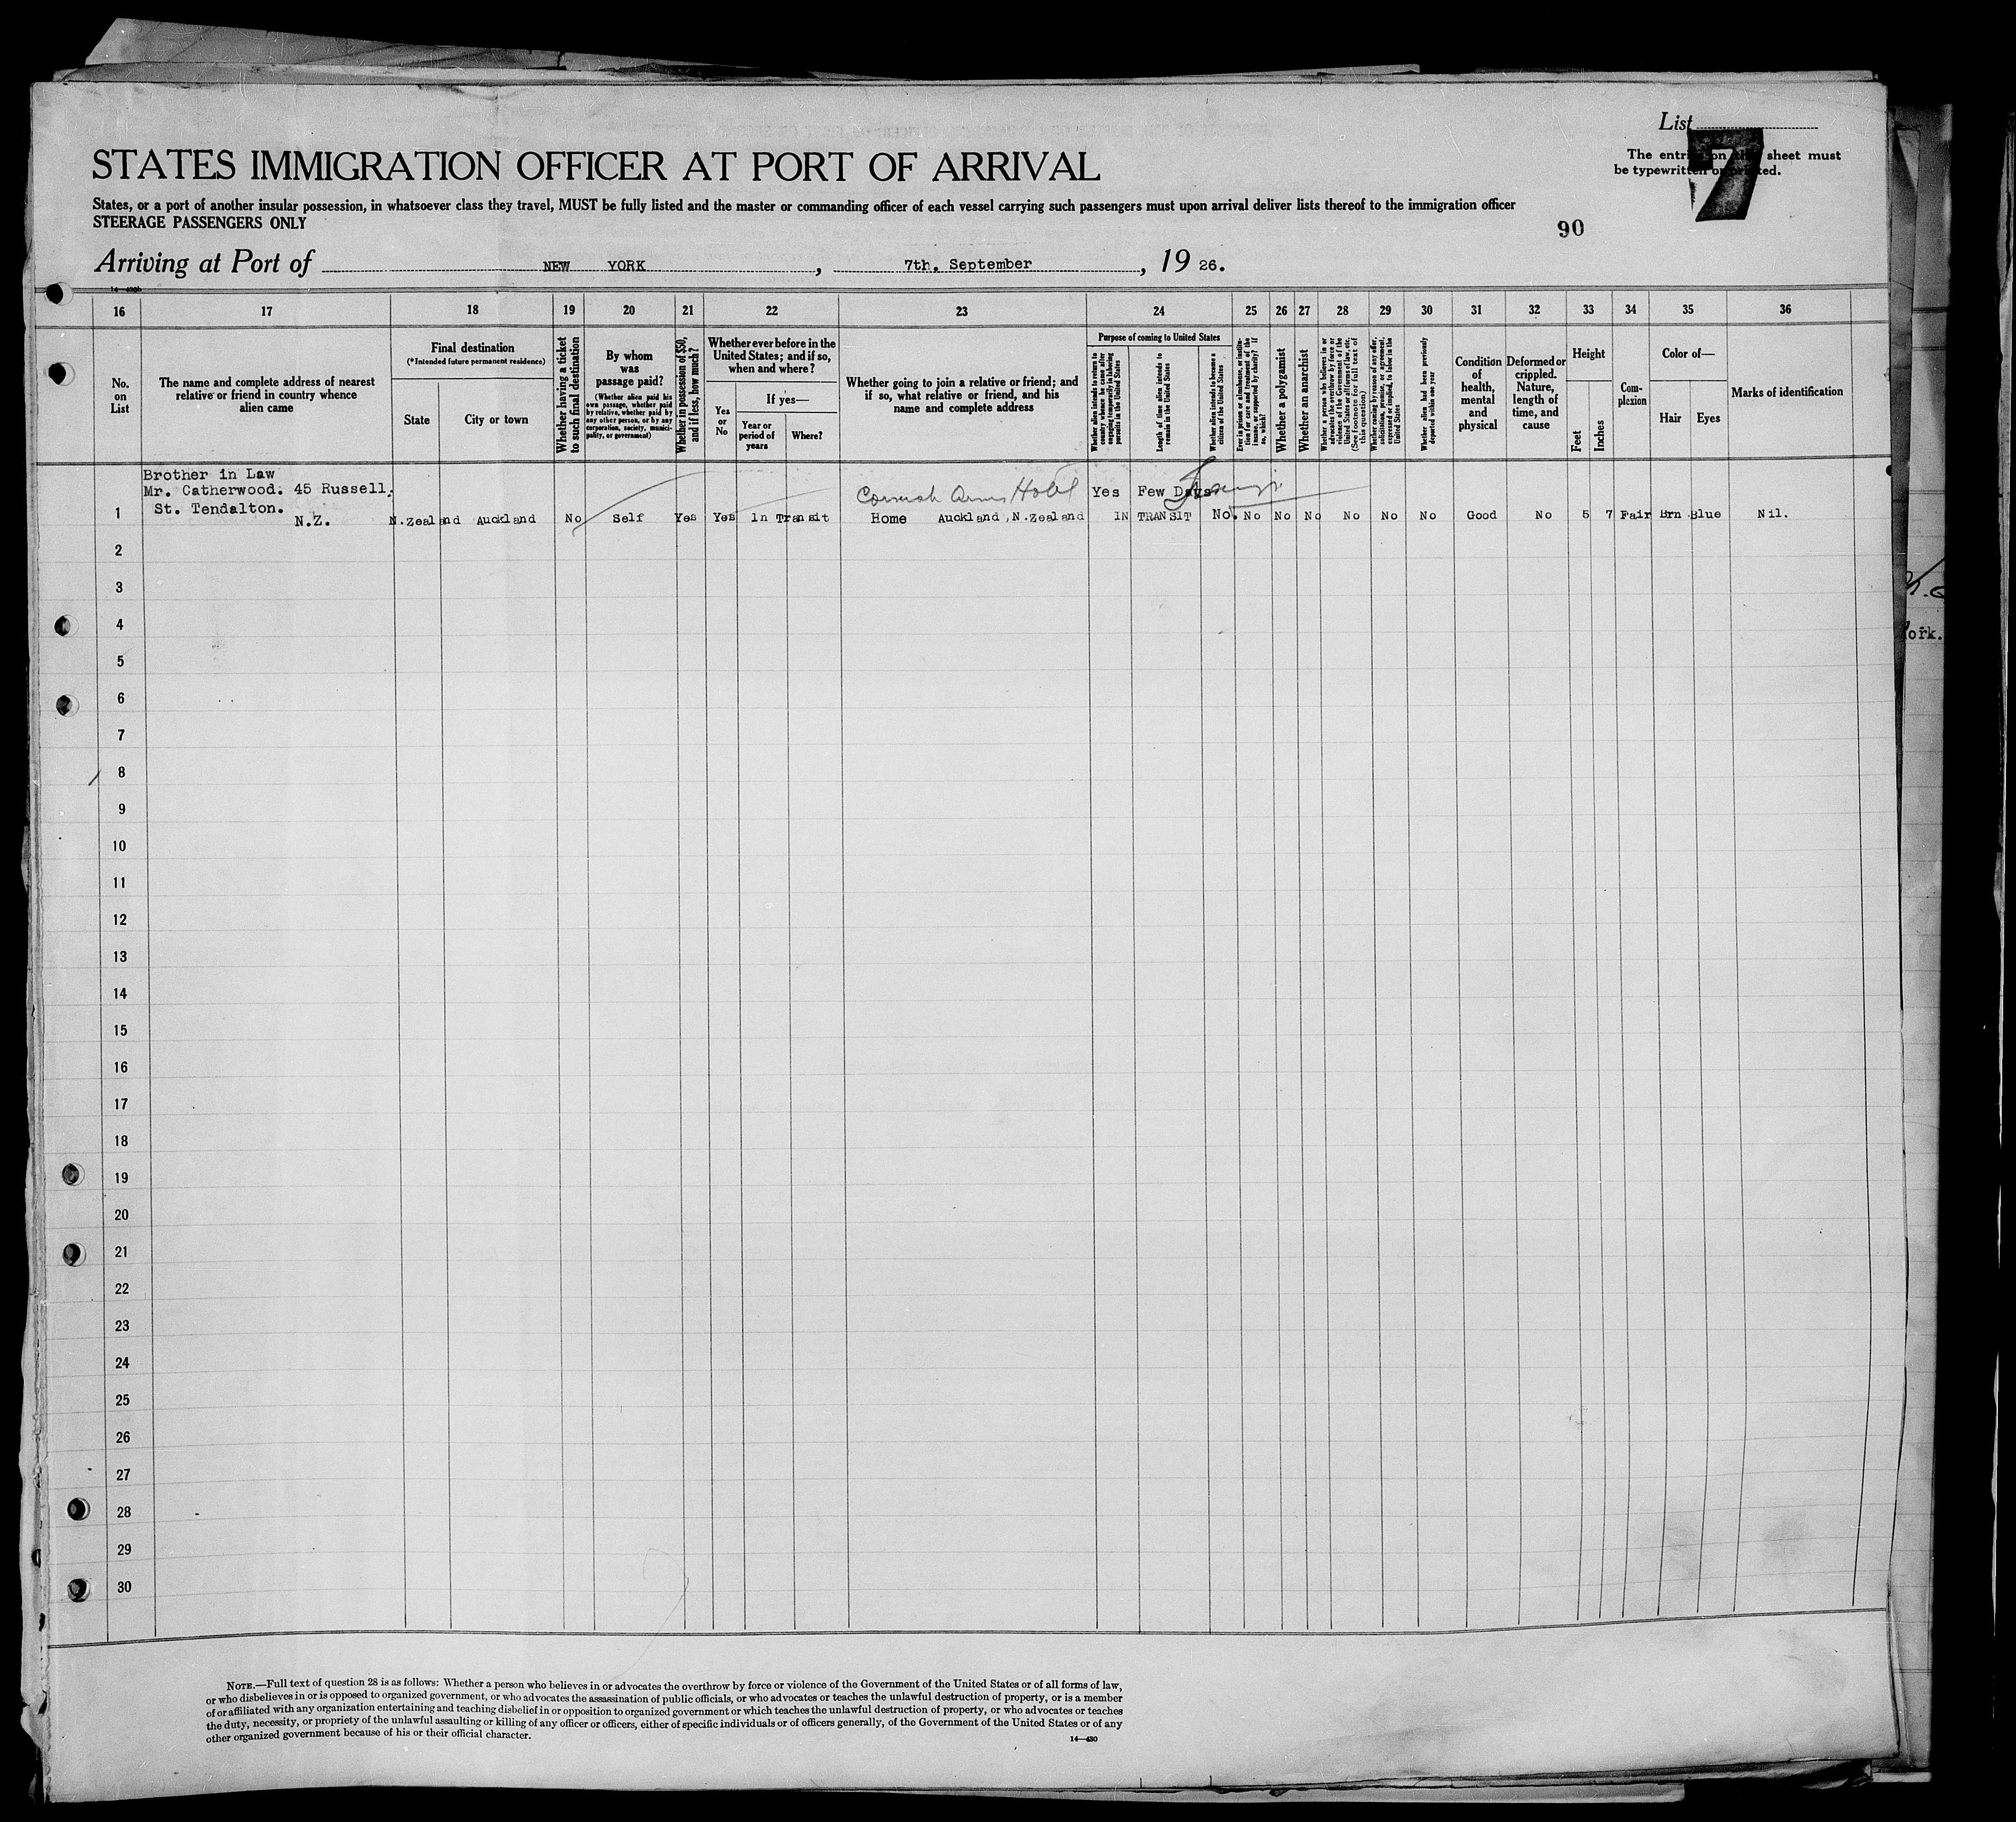 List
7
The entries on this sheet must
be typewritten or printed.
STATES IMMIGRATION OFFICER AT PORT OF ARRIVAL
States, or a port of another insular possession, in whatsoever class they travel, MUST be fully listed and the master or commanding officer of each vessel carrying such passengers must upon arrival deliver lists thereof to the immigration officer
STEERAGE PASSENGERS ONLY
90
Arriving at Port of NEW YORK, 7th. September, 19 26.
16 17 18 19 20 21 22 23 24 25 26 27 28 29 30 31 32 33 34 35 36
No. on List
The name and complete address of nearest relative or friend in country whence alien came
Final destination
(*Intended future permanent residence)
State
City or town
Whether having a ticket to such final destination
By whom was passage paid?
(Whether alien paid his own passage, whether paid by relative, whether paid by any other person, or by any corporation, society, municipality, or government)
Whether in possession of $50, and if less, how much?
Whether ever before in the United States; and if so, when and where?
Yes or No
If yes—
Year or period of years
Where?
Whether going to join a relative or friend; and if so, what relative or friend, and his name and complete address
Purpose of coming to United States
Whether alien intends to return to country whence he came after engaging temporarily in laboring pursuits in the United States
Length of time alien intends to remain in the United States
Whether alien intends to become a citizen of the United States
Ever in prison or almshouse, or institution for care and treatment of the insane, or supported by charity? If so, which?
Whether a polygamist
Whether an anarchist
Whether a person who believes in or advocates the overthrow by force or violence of the Government of the United States or all forms of law, etc. (See footnote for full text of this question)
Whether coming by reason of any offer, solicitation, promise, or agreement, expressed or implied, to labor in the United States
Whether alien had been previously deported within one year
Condition of health, mental and physical
Deformed or crippled. Nature, length of time, and cause
Height
Feet
Inches
Com-plexion
Color of—
Hair
Eyes
Marks of identification
Brother in Law
Mr. Catherwood. 45 Russell.
St. Tendalton.
N.Z.
Cornish Arms Hotel
Yes Few Days
1 N.Zealand Auckland No Self Yes Yes In Transit Home Auckland, N.Zealand IN TRANSIT No. No No No No No No Good No 5 7 Fair Brn Blue Nil.
2
3
4
5
6
7
8
9
10
11
12
13
14
15
16
17
18
19
20
21
22
23
24
25
26
27
28
29
30
ork.
NOTE.—Full text of question 28 is as follows: Whether a person who believes in or advocates the overthrow by force or violence of the Government of the United States or of all forms of law,
or who disbelieves in or is opposed to organized government, or who advocates the assassination of public officials, or who advocates or teaches the unlawful destruction of property, or is a member
of or affiliated with any organization entertaining and teaching disbelief in or opposition to organized government or which teaches the unlawful destruction of property, or who advocates or teaches
the duty, necessity, or propriety of the unlawful assaulting or killing of any officer or officers, either of specific individuals or of officers generally, of the Government of the United States or of any
other organized government because of his or their official character.
14—430